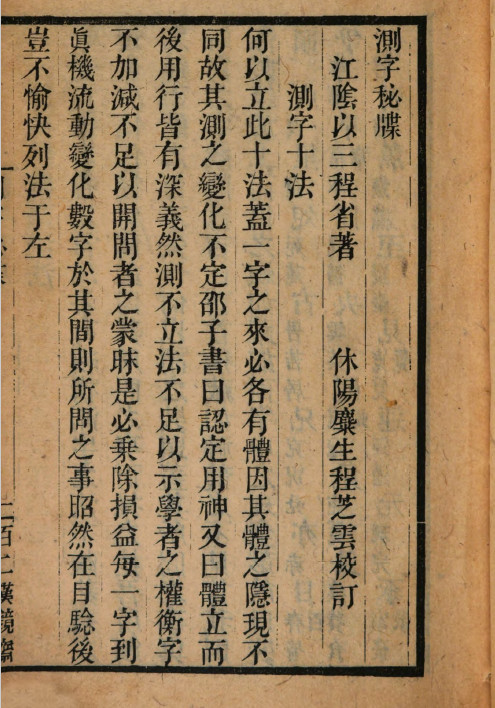 測字秘牒
江陰以三程省著　休陽麋生程芝雲校訂
測字十法
何以立此十法蓋一字之來必各有體因其體之隱現不
同故其測之變化不定邵子書曰認定用神又曰體立而
後用行皆有深義然測不立法不足以示學者之權衡字
不加減不足以開問者之蒙昧是必乘除損益每一字到
眞機流動變化數字於其間則所問之事昭然在目驗後
豈不愉快列法于左
二百二漢鏡齋